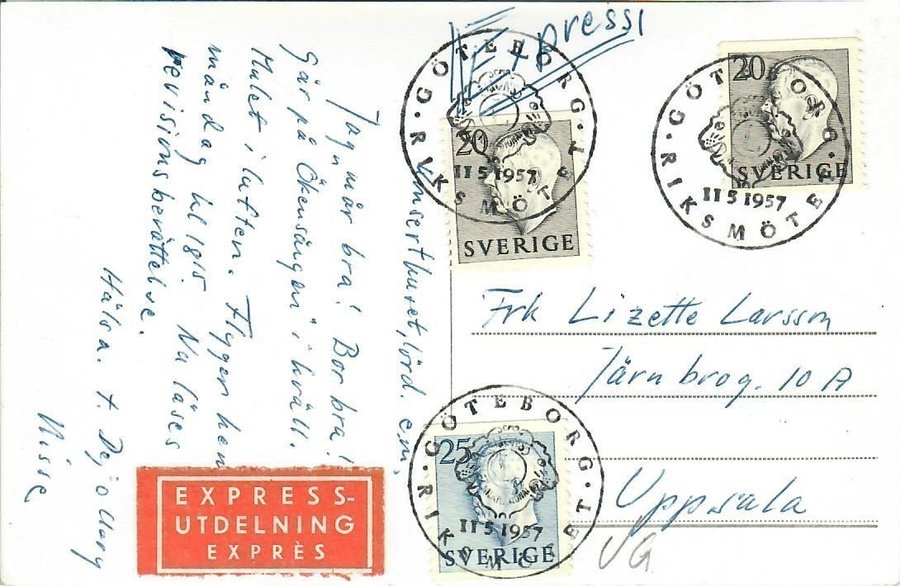 Expressi
Konserthuset, lörd. em.
Jag mår bra! Bor bra!
Går på Ökensången i kväll.
Mulet i luften. Flyger hem
måndag kl 1815. Nu läses
revisionsberättelse.
Hälsn. t. Dej o
Nisse
EXPRESS-
UTDELNING
EXPRÈS
20
SVERIGE
GÖTEBORG
11 5 1957
RIKSMÖTET
20
SVERIGE
GÖTEBORG
11 5 1957
RIKSMÖTET
Frk Lizette Larsson
Järnbrog. 10 A
Uppsala
VG
25
SVERIGE
GÖTEBORG
11 5 1957
RIKSMÖTET